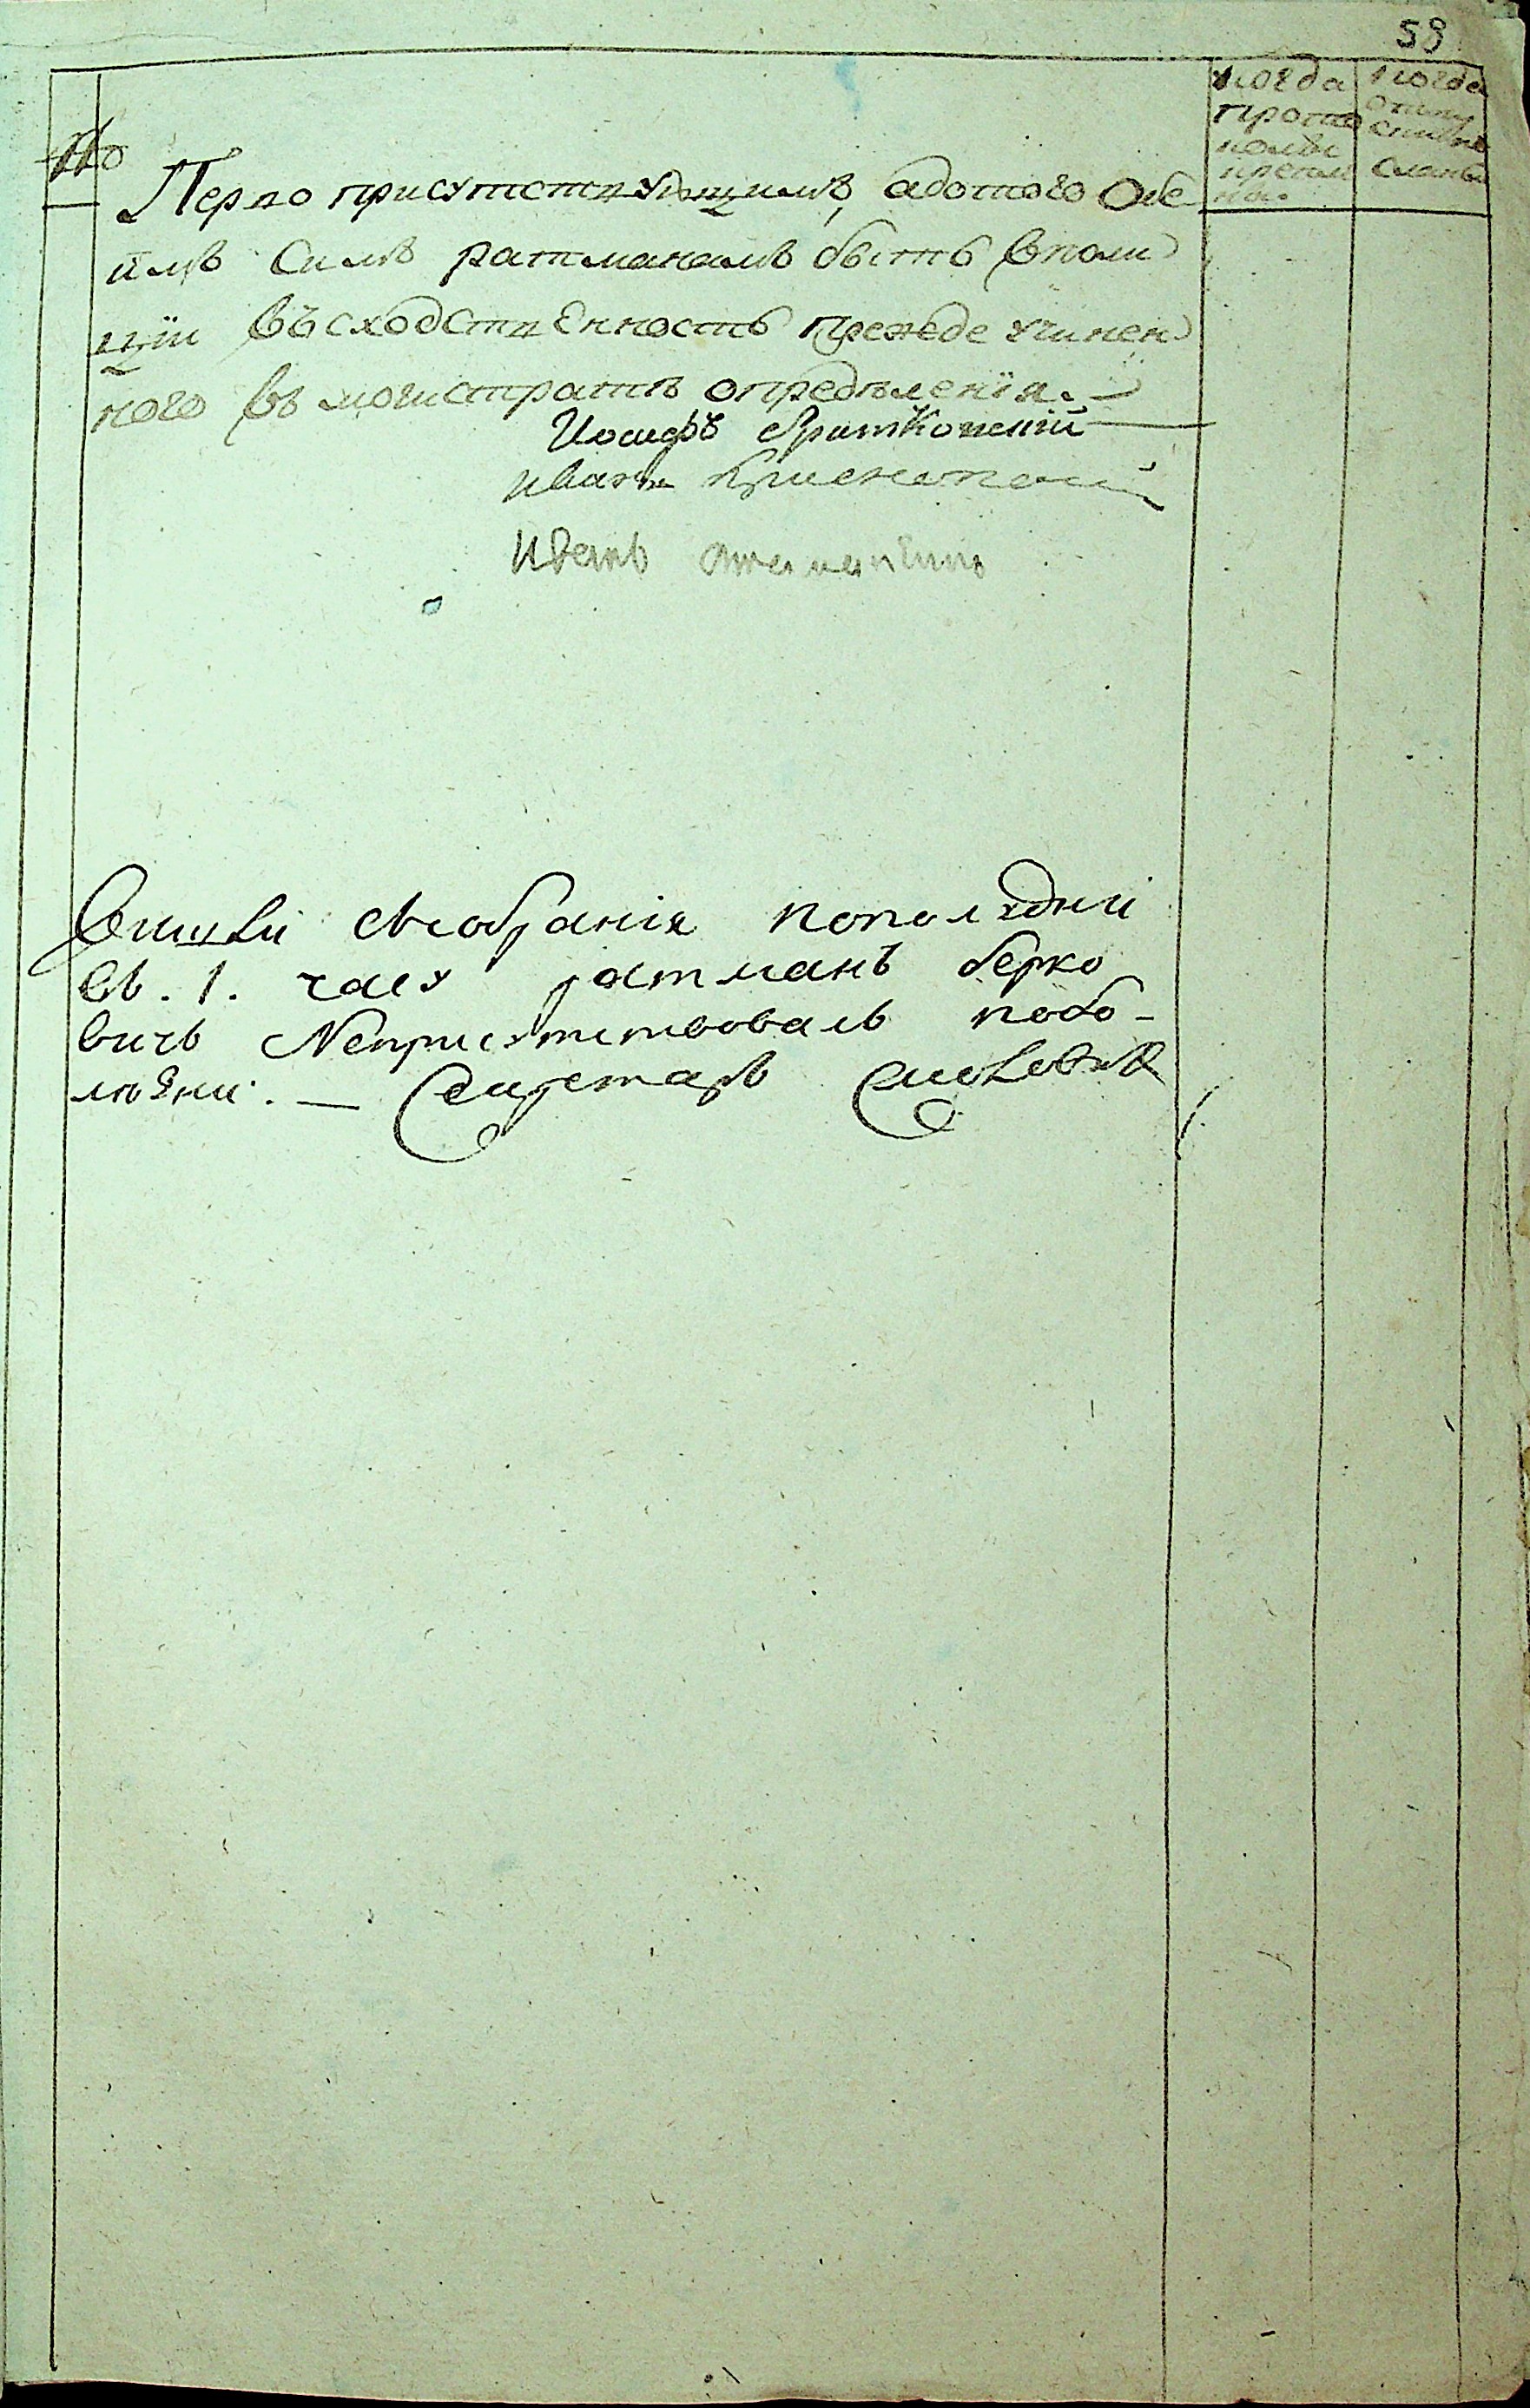 59
№
когда
прото
колы
когда
Перво присутствующимъ, адотого Обе
имъ симъ ратманамъ быть вполи
ціи въсходственность прежде учинен
ного въ магистратъ опредѣленія. —
Иосифъ
Иванъ
Иванъ
собранія пополудни
въ. 1. часу ратманъ берко
вичъ Неприсутствовалъ побо-
лѣзни. — Секретарь